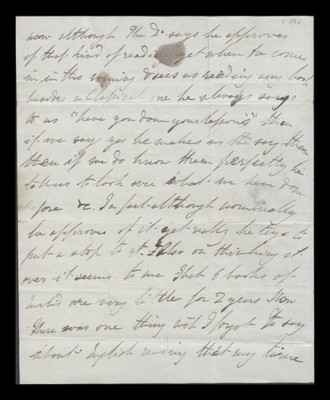 now although The Dr. says he approves
of that kind of reading yet when he comes
in in the evening & sees us reading any book
besides a Classical one he always says
to us "have you done your lessons" then
if we say yes he makes us say them
then if we do know them perfectly he
tells us to look over what we have done
before &c. In fact although nominally
he approves of it yet really he trys to
put a stop to it. Also on thinking it
over it seems to me that 6 books of
Euclid are very little for 2 years. Now
there was one thing wch I forgot to say
about English viz that my time